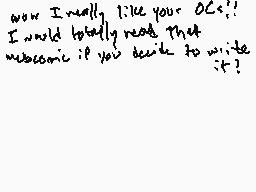 wow I really like your OCs!!
I would totally read that
webcomic if you decide to write
it!